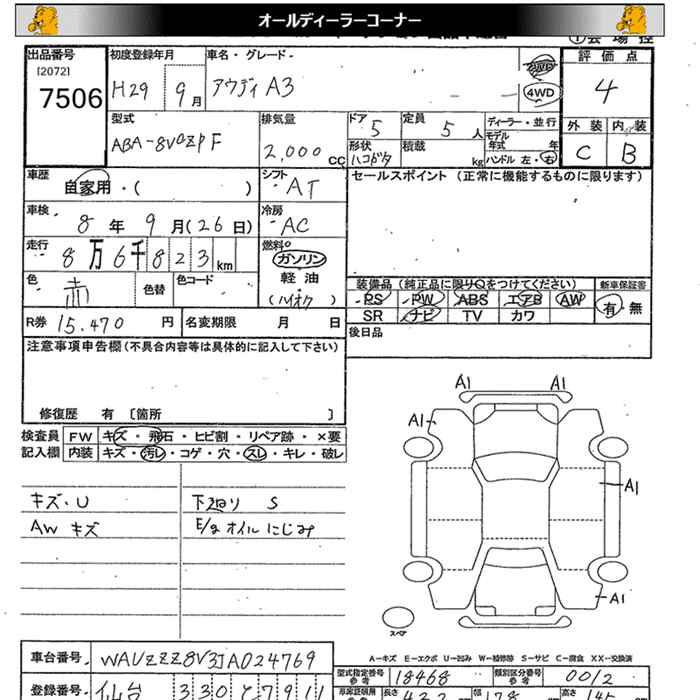 オールディーラーコーナー
出品番号
[2072]
7506
初度登録年月
H29 9月
車名・グレード
アウディ A3
4WD
評価点
4
外装 内装
C B
型式
ABA-8V
排気量
2,000 cc
ドア 5
定員 5 人
形状 ハコボタ
積載 kg
ディーラー・並行
モデル年式 年
ハンドル 左・右
車歴
自家用・( )
シフト
AT
セールスポイント (正常に機能するものに限ります)
車検
8 年 9 月(26 日)
冷房
AC
走行
8万6千823km
燃料
ガソリン
軽油
(ハイオク)
色
赤
色替
色コード
装備品 (純正品に限りOをつけてください)
新車保証書
PS PW ABS エアB AW
SR ナビ TV カワ
有・無
R券 15.470 円
名変期限 月 日
後日品
注意事項申告欄(不具合内容等は具体的に記入して下さい)
修復歴 有 〔箇所 〕
検査員記入欄
FW キズ・飛石・ヒビ割・リペア跡・×要
内装 キズ・汚レ・コゲ・穴・スレ・キレ・破レ
キズ・U
AW キズ
下廻り S
E/g オイルにじみ
A1 A1
A1
A1
A1
スペア
A-キズ E-エクボ U-凹み W-補修跡 S-サビ C-腐食 XX-交換済
車台番号 WAUZZZ8V3JA024769
型式指定番号参考 18468
類別区分番号参考 0012
登録番号 仙台 330
長さ
幅 178
高さ 145